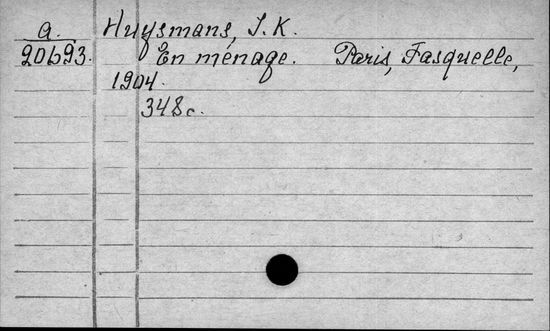 a. Huysmans, J. K.
20693. En ménage. Paris, Fasquelle,
1904.
348c.